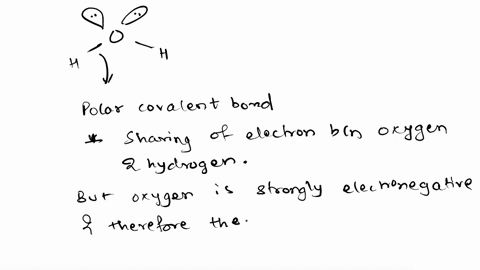 O
H H
Polar covalent bond
* Sharing of electron b/n oxygen
& hydrogen.
But oxygen is strongly electronegative
& therefore the.